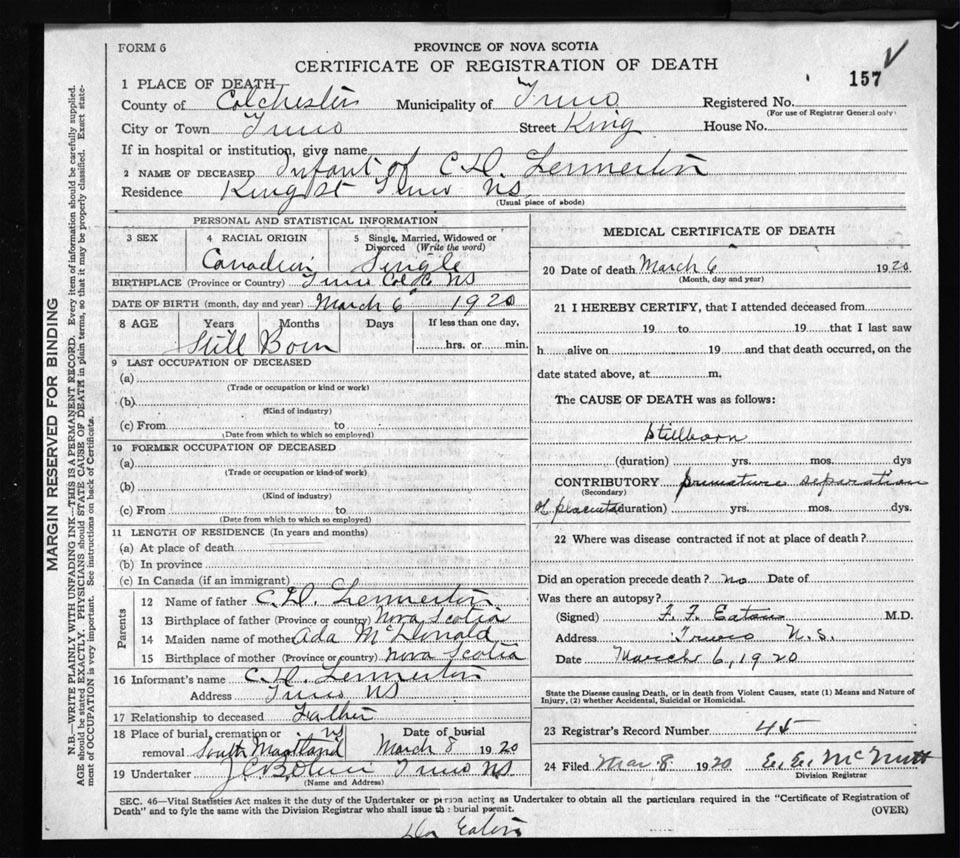 FORM 6
PROVINCE OF NOVA SCOTIA
CERTIFICATE OF REGISTRATION OF DEATH
157
1 PLACE OF DEATH
County of Colchester Municipality of Truro Registered No.
(For use of Registrar General only)
City or Town Truro Street King House No.
If in hospital or institution, give name
2 NAME OF DECEASED Infant of C.D.
Residence King St Truro NS
(Usual place of abode)
PERSONAL AND STATISTICAL INFORMATION
3 SEX 4 RACIAL ORIGIN 5 Single, Married, Widowed or Divorced (Write the word)
Canadian Single
BIRTHPLACE (Province or Country) Truro Col Co NS
DATE OF BIRTH (month, day and year) March 6 1920
8 AGE Years Months Days If less than one day,
Still Born hrs. or min.
9 LAST OCCUPATION OF DECEASED
(a)
(Trade or occupation or kind or work)
(b)
(Kind of industry)
(c) From to
(Date from which to which so employed)
10 FORMER OCCUPATION OF DECEASED
(a)
(Trade or occupation or kind of work)
(b)
(Kind of industry)
(c) From to
(Date from which to which so employed)
11 LENGTH OF RESIDENCE (In years and months)
(a) At place of death
(b) In province
(c) In Canada (if an immigrant)
Parents
12 Name of father C.D.
13 Birthplace of father (Province or country) Nova Scotia
14 Maiden name of mother Ada McDonald
15 Birthplace of mother (Province or country) Nova Scotia
16 Informant's name C.D.
Address Truro NS
17 Relationship to deceased Father
18 Place of burial, cremation or removal South Maitland NS Date of burial March 8 1920
19 Undertaker Truro NS
(Name and Address)
MEDICAL CERTIFICATE OF DEATH
20 Date of death March 6 1920
(Month, day and year)
21 I HEREBY CERTIFY, that I attended deceased from
19 to 19 that I last saw
h alive on 19 and that death occurred, on the
date stated above, at m.
The CAUSE OF DEATH was as follows:
Stillborn
(duration) yrs. mos. dys
CONTRIBUTORY premature separation
(Secondary)
of placenta (duration) yrs. mos. dys.
22 Where was disease contracted if not at place of death?
Did an operation precede death? no Date of
Was there an autopsy?
(Signed) F. F. Eaton M.D.
Address Truro N.S.
Date March 6, 1920
State the Disease causing Death, or in death from Violent Causes, state (1) Means and Nature of
Injury, (2) whether Accidental, Suicidal or Homicidal.
23 Registrar's Record Number 45
24 Filed Mar 8 1920 McNutt
Division Registrar
SEC. 46—Vital Statistics Act makes it the duty of the Undertaker or person acting as Undertaker to obtain all the particulars required in the "Certificate of Registration of
Death" and to fyle the same with the Division Registrar who shall issue the burial permit. (OVER)
Eaton
MARGIN RESERVED FOR BINDING
N.B.—WRITE PLAINLY WITH UNFADING INK—THIS IS A PERMANENT RECORD. Every item of information should be carefully supplied.
AGE should be stated EXACTLY. PHYSICIANS should STATE CAUSE OF DEATH in plain terms, so that it may be properly classified. Exact state-
ment of OCCUPATION is very important. See instructions on back of Certificate.